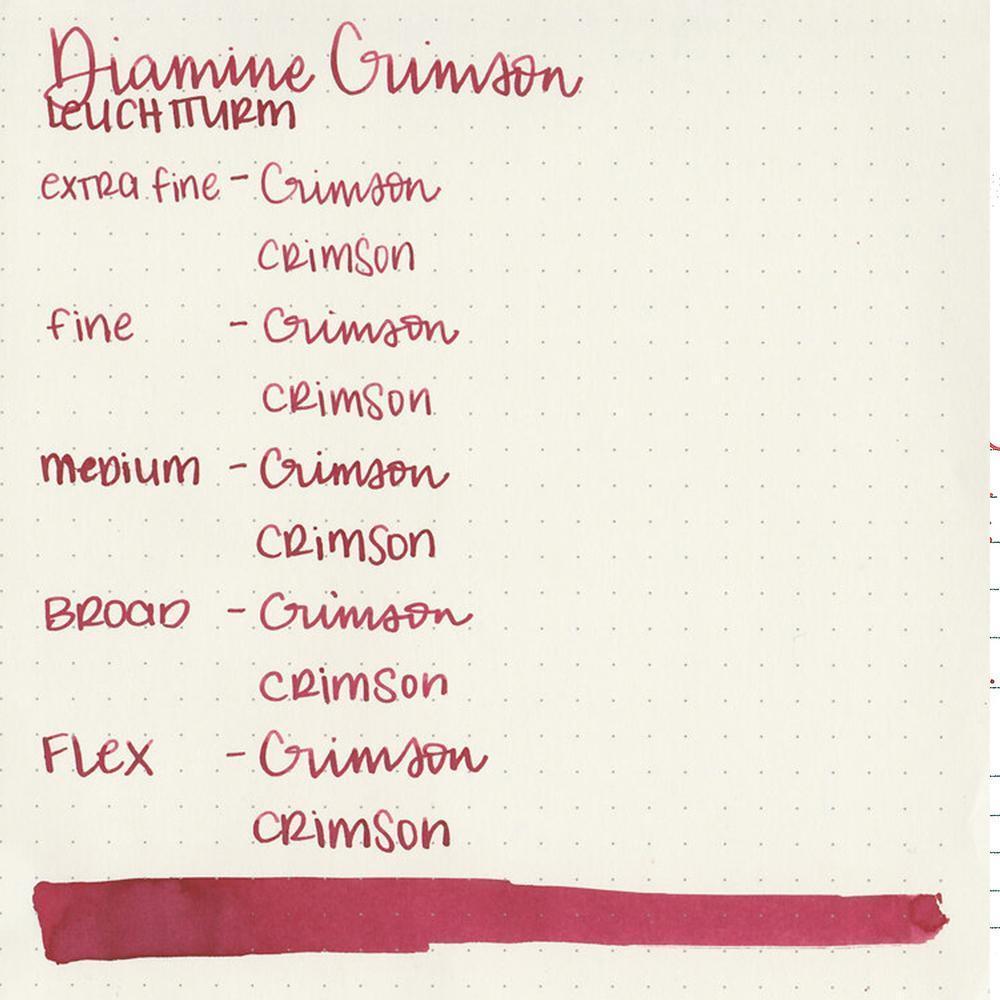 Diamine Crimson
LEUCHTTURM
extra fine - Crimson
CRimSon
fine - Crimson
CRimSon
medium - Crimson
CRimSon
BROAD - Crimson
CRimSon
FLex - Crimson
CRimSon